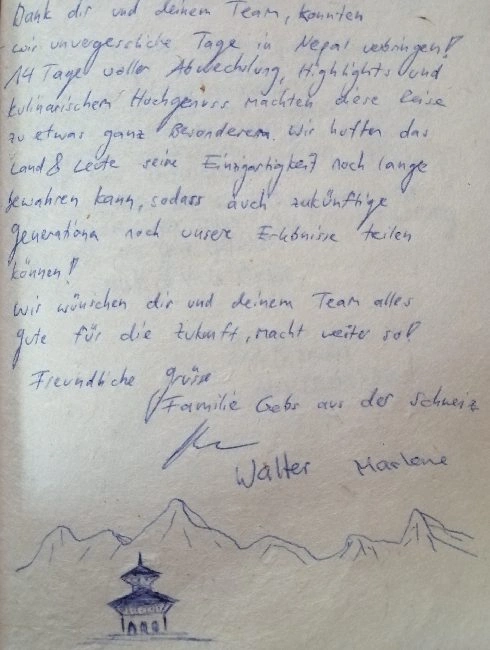 Dank dir und deinem Team, konnten
wir unvergessliche Tage in Nepal verbringen!
14 Tage voller Abwechslung, Highlights und
kulinarischem Hochgenuss machten diese Reise
zu etwas ganz Besonderem. Wir hoffen das
Land & Leute seine Einzigartigkeit noch lange
bewahren kann, sodass auch zukünftige
Generationen noch unsere Erlebnisse teilen
können!
Wir wünschen dir und deinem Team alles
gute für die Zukunft, macht weiter so!
Freundliche grüsse
Familie Gebs aus der Schweiz
Walter Marlene